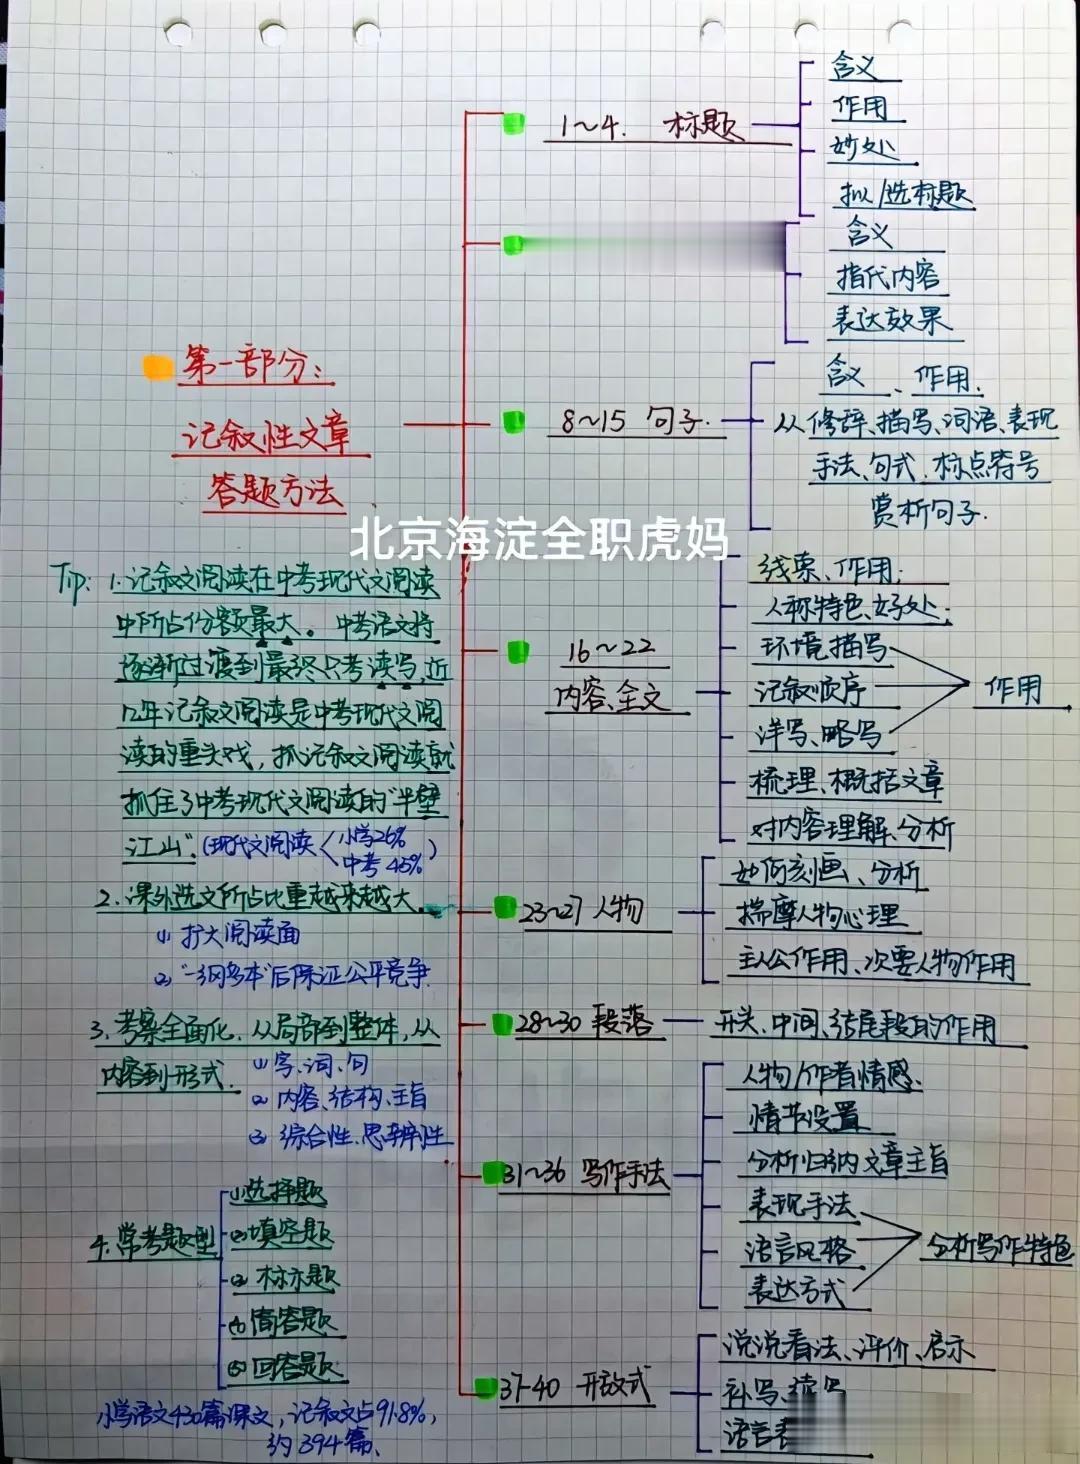 第一部分:
记叙性文章
答题方法
1~4. 标题
含义
作用
妙处
拟/选标题
含义
指代内容
表达效果
8~15 句子.
含义、作用.
从修辞、描写、词语、表现
手法、句式、标点符号
赏析句子.
北京海淀全职虎妈
16~22
内容、全文
线索、作用;
人称特色、好处;
环境描写
记叙顺序
详写、略写
作用
梳理、概括文章
对内容理解、分析
23~27 人物
如何刻画、分析
揣摩人物心理
主人公作用、次要人物作用
28~30 段落
开头、中间、结尾段的作用
31~36 写作手法
人物/作者情感.
情节设置
分析归纳文章主旨
表现手法
语言风格
表达方式
分析写作特色
37-40 开放式
说说看法、评价、启示
补写、续写
语言表
Tip: 1.记叙文阅读在中考现代文阅读
中所占份额最大。中考语文将
逐渐过渡到最终只考读写,近
几年记叙文阅读是中考现代文阅
读的重头戏,抓记叙文阅读就
抓住了中考现代文阅读的"半壁
江山".(现代文阅读<小学26%
中考45%)
2.课外选文所占比重越来越大.
① 扩大阅读面
② "一纲多本"后保证公平竞争.
3.考察全面化.从局部到整体,从
内容到形式.
① 字、词、句
② 内容、结构、主旨
③ 综合性.思辨性
4.常考题型
①选择题
②填空题
③标示题
④简答题
⑤回答题
小学语文430篇课文,记叙文占91.8%,
约394篇、